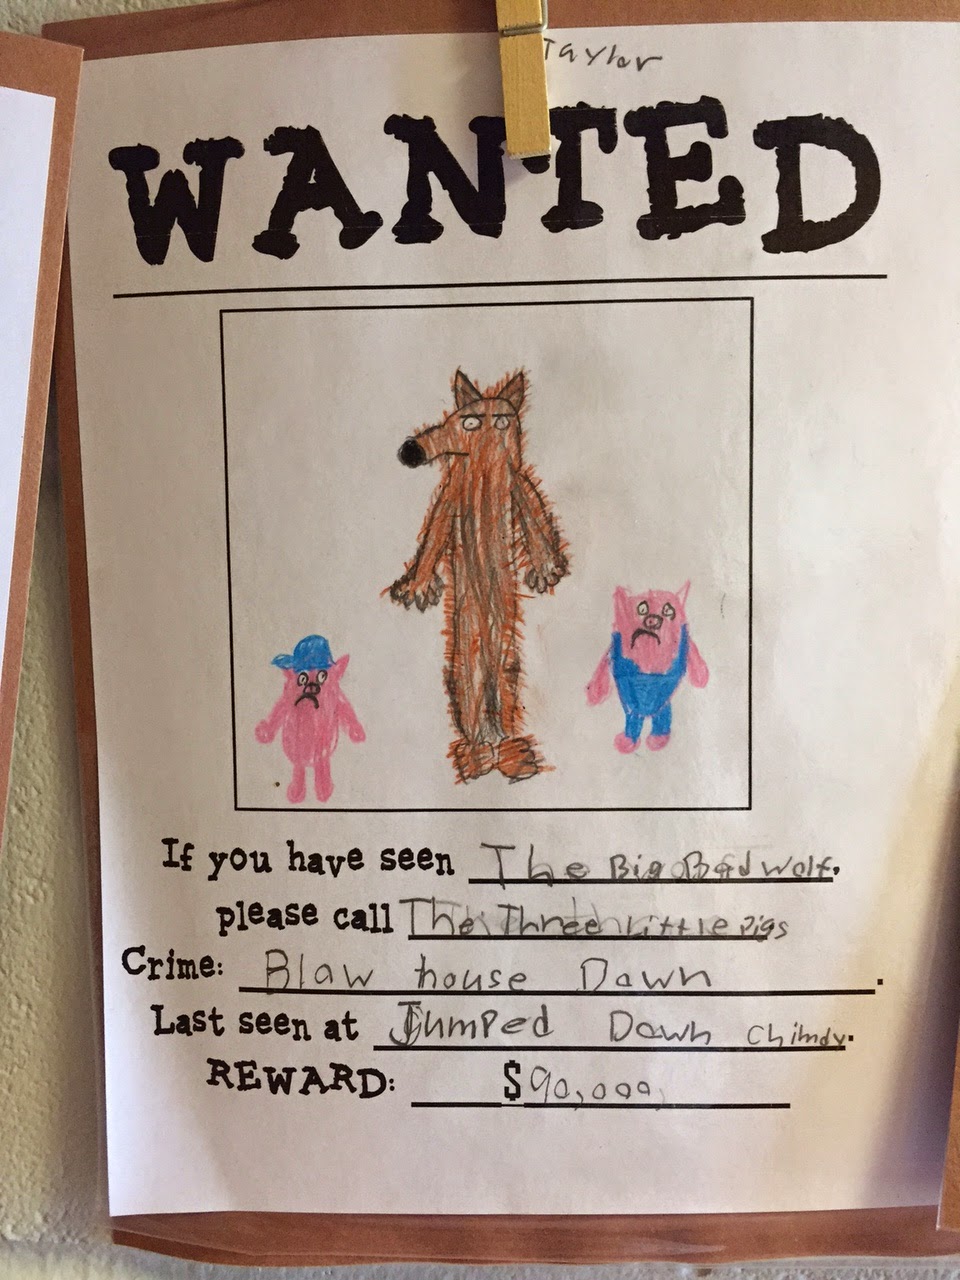 Taylor
WANTED
If you have seen The Big Bad wolf.
please call The Three Little pigs
Crime: Blaw house Dawn.
Last seen at Jumped Dawn Chimdy.
REWARD: $90,000